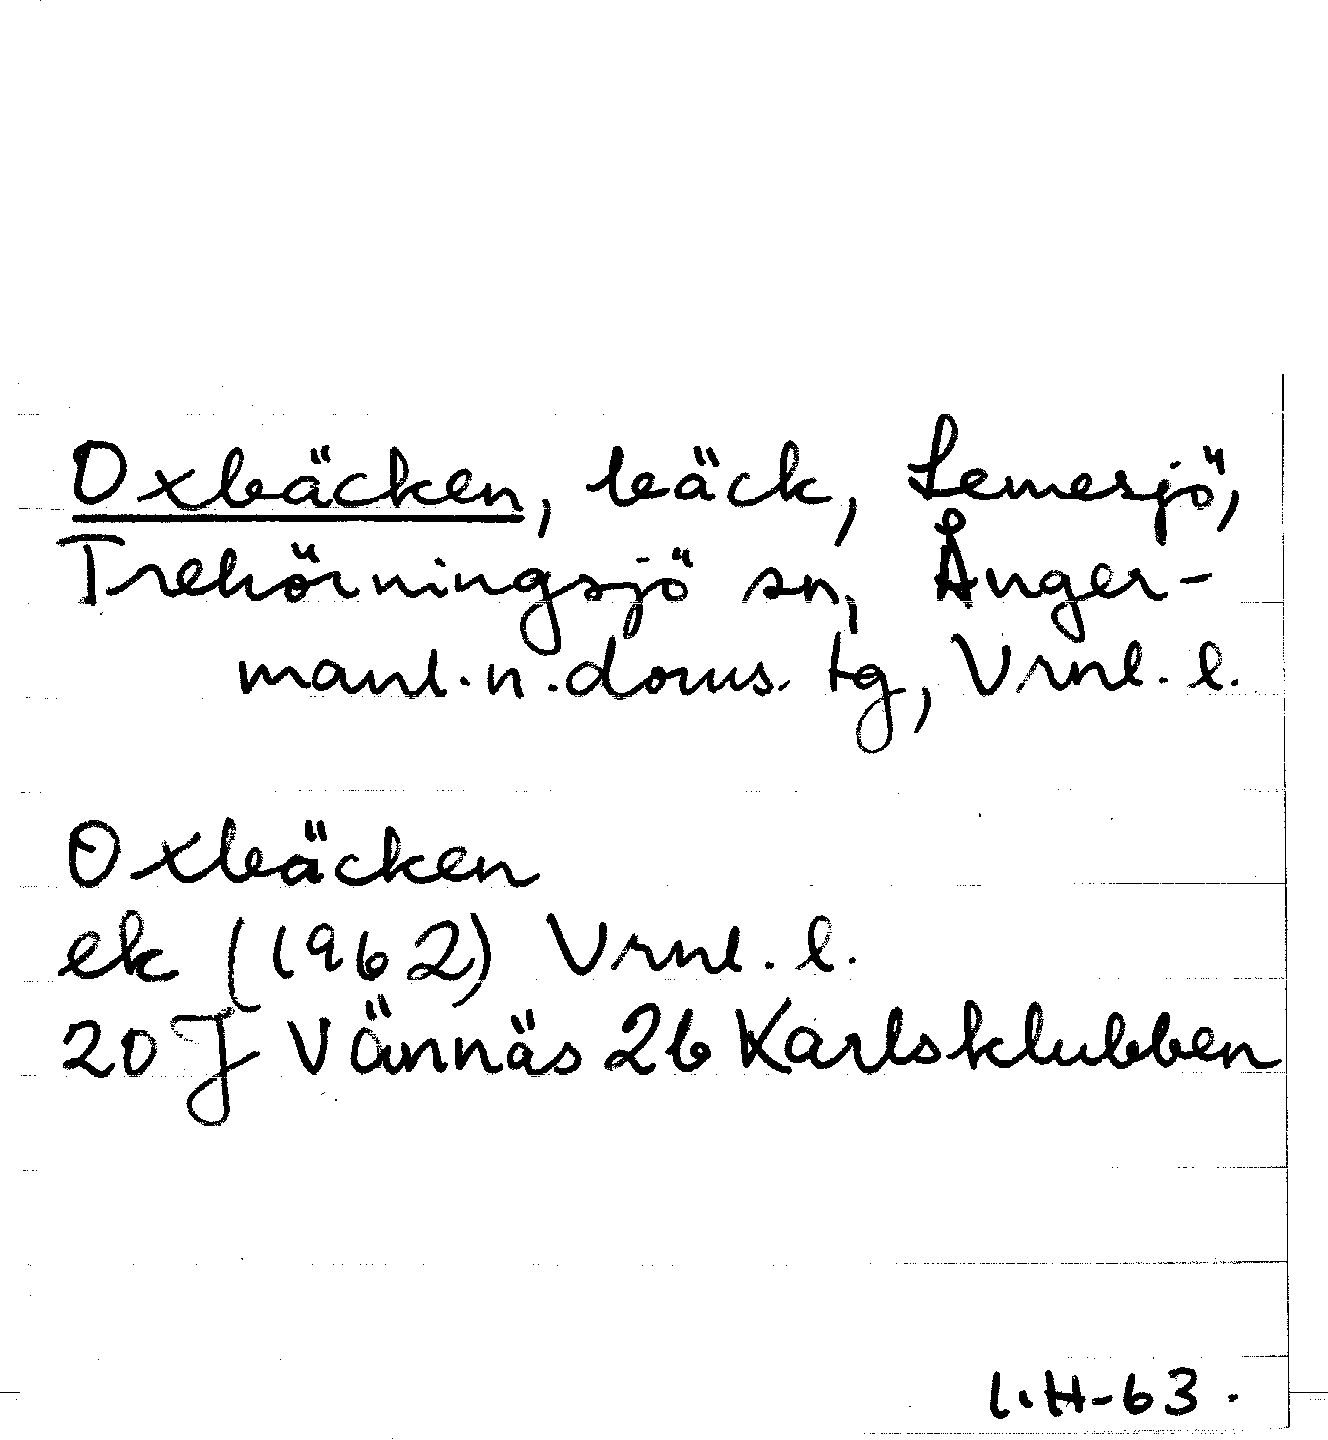 Oxbäcken, bäck, Lemesjö,
Trehörningsjö sn, Ånger-
manl. n. doms. tg, Vrnl. l.
Oxbäcken
ek (1962) Vrnl. l.
20 J Vännäs 2b Karlsklubben
I.H-63.